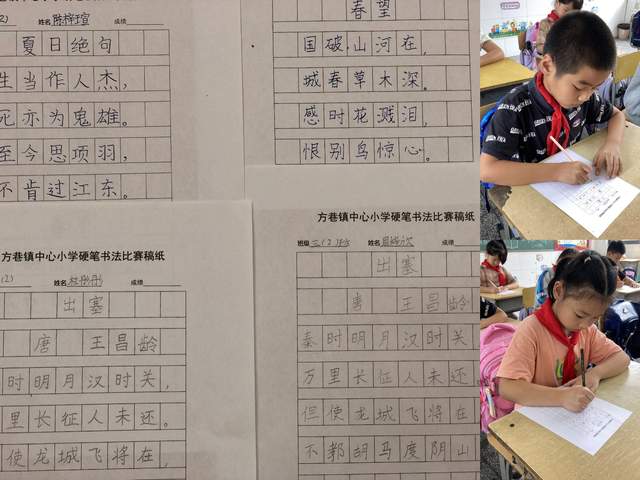 2) 姓名 成绩
夏日绝句
生当作人杰，
死亦为鬼雄。
至今思项羽，
不肯过江东。
春望
国破山河在，
城春草木深。
感时花溅泪，
恨别鸟惊心。
方巷镇中心小学硬笔书法比赛稿纸
(2) 姓名 成绩
出塞
唐 王昌龄
时明月汉时关，
里长征人未还。
使龙城飞将在，
方巷镇中心小学硬笔书法比赛稿纸
班级 三(2) 姓名 成绩
出塞
唐 王昌龄
秦时明月汉时关
万里长征人未还
但使龙城飞将在
不 胡马度阴山